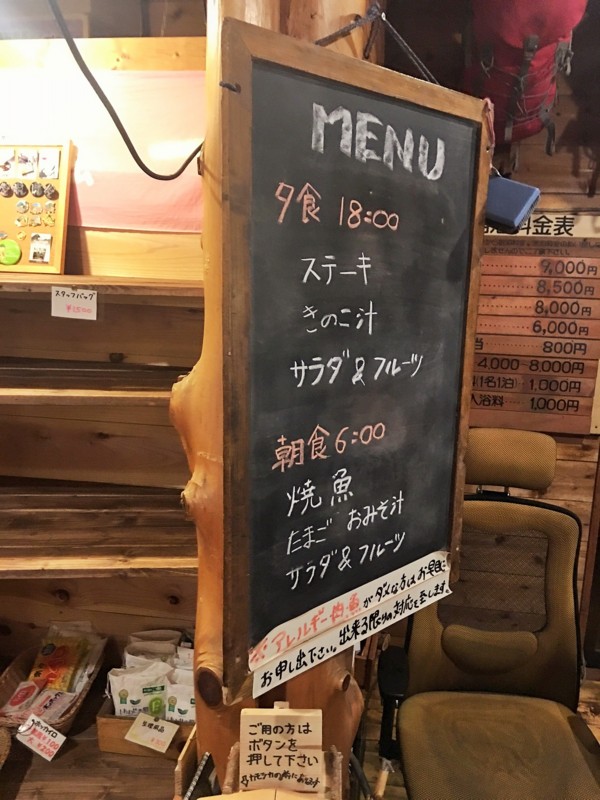 MENU
夕食 18:00
ステーキ
きのこ汁
サラダ & フルーツ
朝食 6:00
焼魚
たまご おみそ汁
サラダ & フルーツ
※アレルギー・肉、魚がダメな方はお早目に
お申し出下さい。出来る限りの対応を致します。
スタッフバッグ
料金表
7,000円
8,500円
8,000円
6,000円
当 800円
4,000 8,000円
(1名1泊) 1,000円
入浴料 1,000円
ホッカイロ
ご用の方は
ボタンを
押して下さい